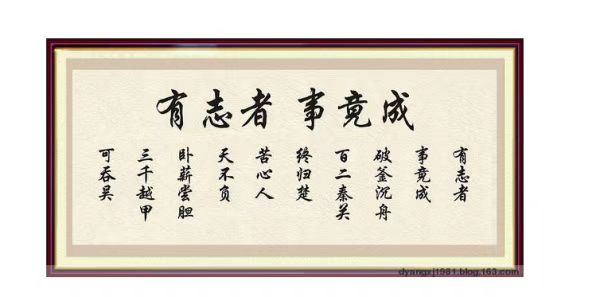 有志者 事竟成
有志者
事竟成
破釜沉舟
百二秦关
终归楚
苦心人
天不负
卧薪尝胆
三千越甲
可吞吴
dyangxj1981.blog.163.com